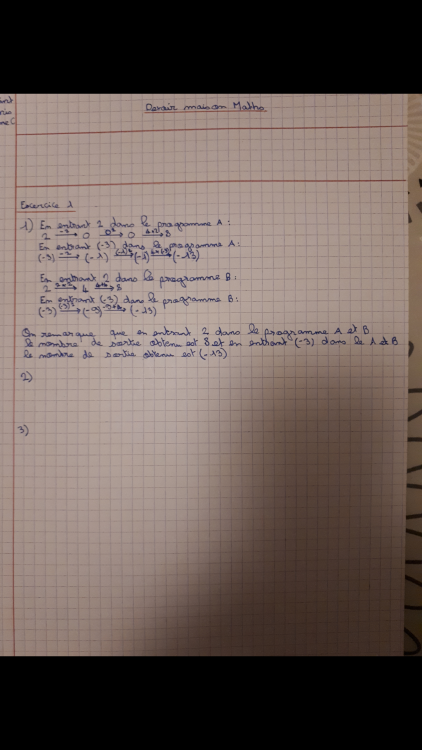 Devoir maison Maths
Exercice 1
1) En entrant 2 dans le programme A :
2 → 0 → 0 → 8
En entrant (-3) dans le programme A :
(-3) → (-1) → (-1) → (-13)
En entrant 2 dans le programme B :
2 → 4 → 8
En entrant (-3) dans le programme B :
(-3) → (-9) → (-13)
On remarque que en entrant 2 dans le programme A et B
le nombre de sortie obtenu est 8 et en entrant (-3) dans le A et B
le nombre de sortie obtenu est (-13)
2)
3)